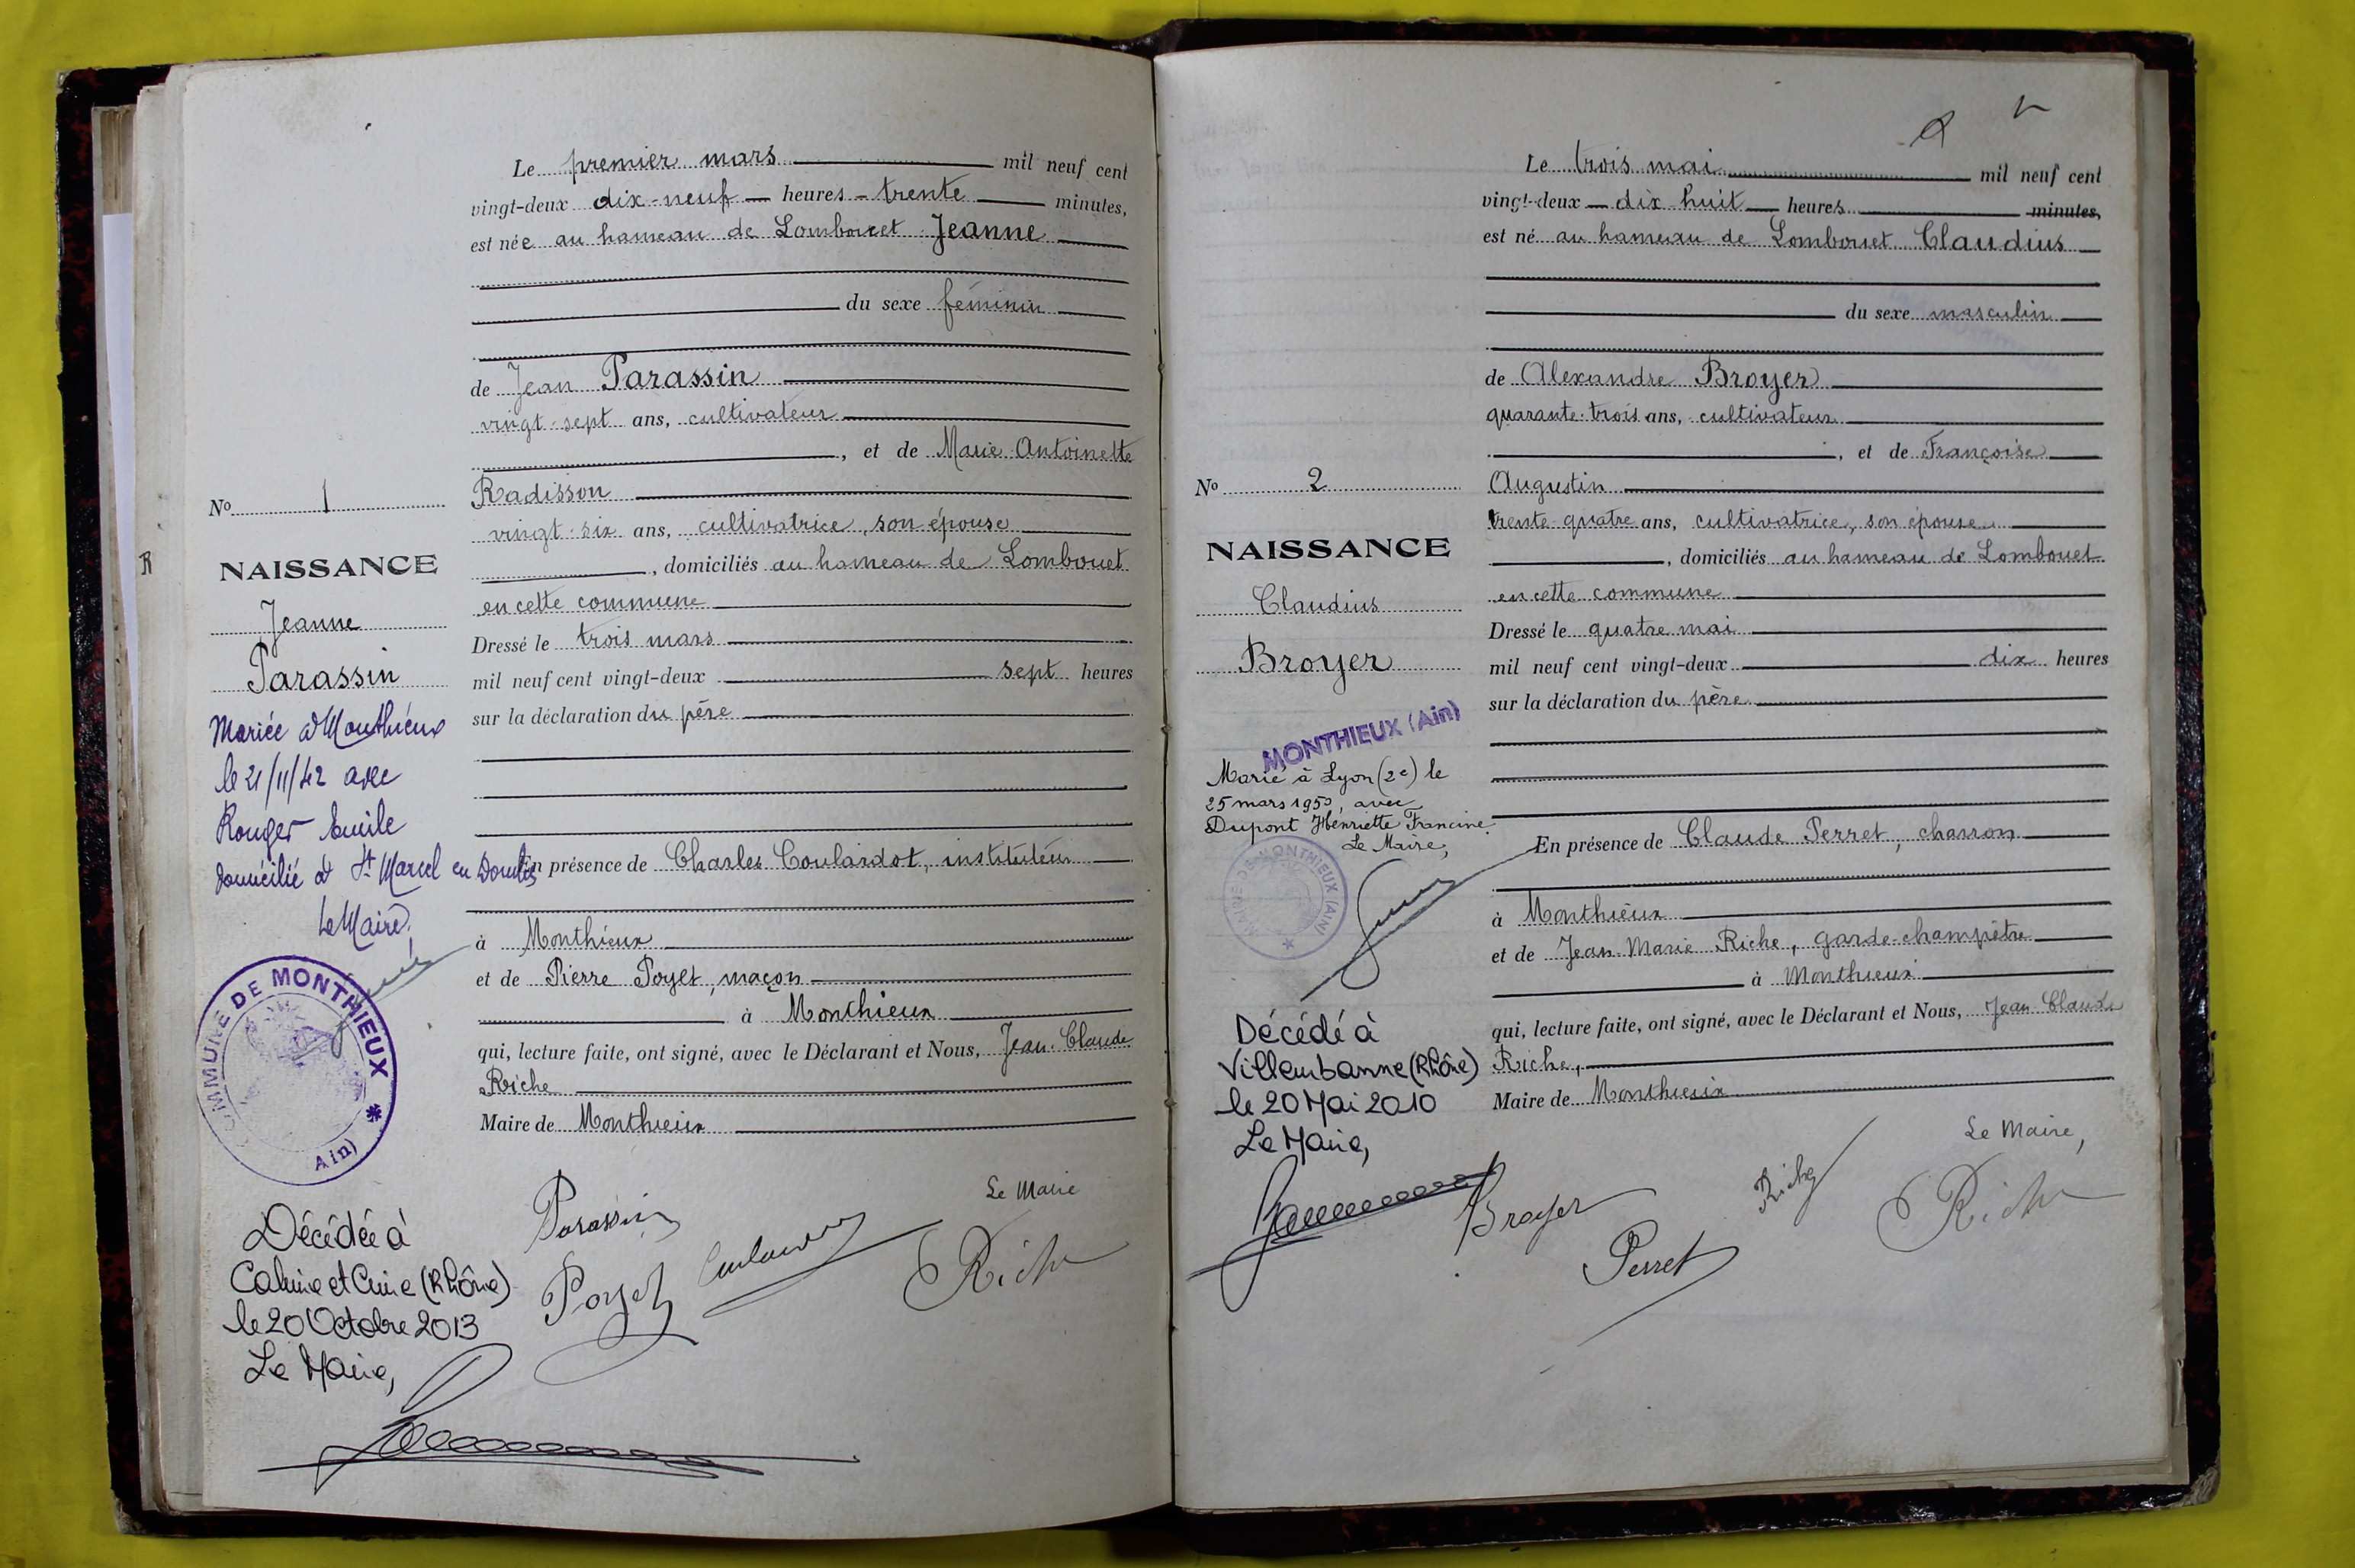 Le premier mars mil neuf cent
vingt-deux dix-neuf heures trente minutes,
est née au hameau de Lombouet Jeanne
du sexe féminin
de Jean Parassin
vingt-sept ans, cultivateur
, et de Marie Antoinette
Radisson
vingt-six ans, cultivatrice, son épouse
, domiciliés au hameau de Lombouet
en cette commune
Dressé le trois mars
mil neuf cent vingt-deux sept heures
sur la déclaration du père
En présence de Charles Coulardot, instituteur
à Monthieux
et de Pierre Poyet, maçon
à Monthieux
qui, lecture faite, ont signé, avec le Déclarant et Nous, Jean-Claude
Riche
Maire de Monthieux
Le Maire
Parassin
Poyet
Riche
No 1
R
NAISSANCE
Jeanne
Parassin
Mariée à Monthieux
le 21/11/42 avec
Rouger Emile
domicilié à St Marcel en Dombes
Le Maire,
COMMUNE DE MONTHIEUX * (Ain)
Décédée à
Caluire et Cuire (Rhône)
le 20 Octobre 2013
Le Maire,
Le trois mai mil neuf cent
vingt-deux dix huit heures minutes,
est né au hameau de Lombouet Claudius
du sexe masculin
de Alexandre Broyer
quarante-trois ans, cultivateur
, et de Françoise
Augustin
trente quatre ans, cultivatrice, son épouse
, domiciliés au hameau de Lombouet
en cette commune
Dressé le quatre mai
mil neuf cent vingt-deux dix heures
sur la déclaration du père
En présence de Claude Perret, charron
à Monthieux
et de Jean-Marie Riche, garde-champêtre
à Monthieux
qui, lecture faite, ont signé, avec le Déclarant et Nous, Jean Claude
Riche,
Maire de Monthieux
Le Maire,
Broyer
Perret
Riche
Riche
No 2
NAISSANCE
Claudius
Broyer
MONTHIEUX (Ain)
Marié à Lyon (2e) le
25 mars 1950, avec
Dupont Henriette Francine
Le Maire,
MAIRIE DE MONTHIEUX (AIN) *
Décédé à
Villeurbanne (Rhône)
le 20 Mai 2010
Le Maire,